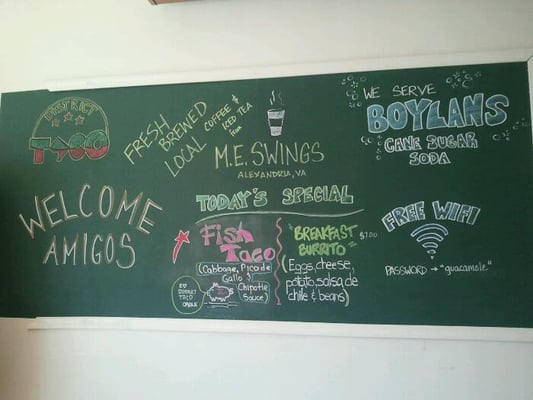 DISTRICT
TACO
FRESH
BREWED
LOCAL
COFFEE &
ICED TEA
from
M.E. SWINGS
ALEXANDRIA, VA
WE SERVE
BOYLANS
CANE SUGAR
SODA
WELCOME
AMIGOS
TODAY'S SPECIAL
Fish
Taco
(Cabbage, Pico de
Gallo &
Chipotle
Sauce)
"BREAKFAST
BURRITO" $7.00
(Eggs, cheese,
potato, salsa de
chile & beans)
FREE WIFI
PASSWORD → "guacamole"